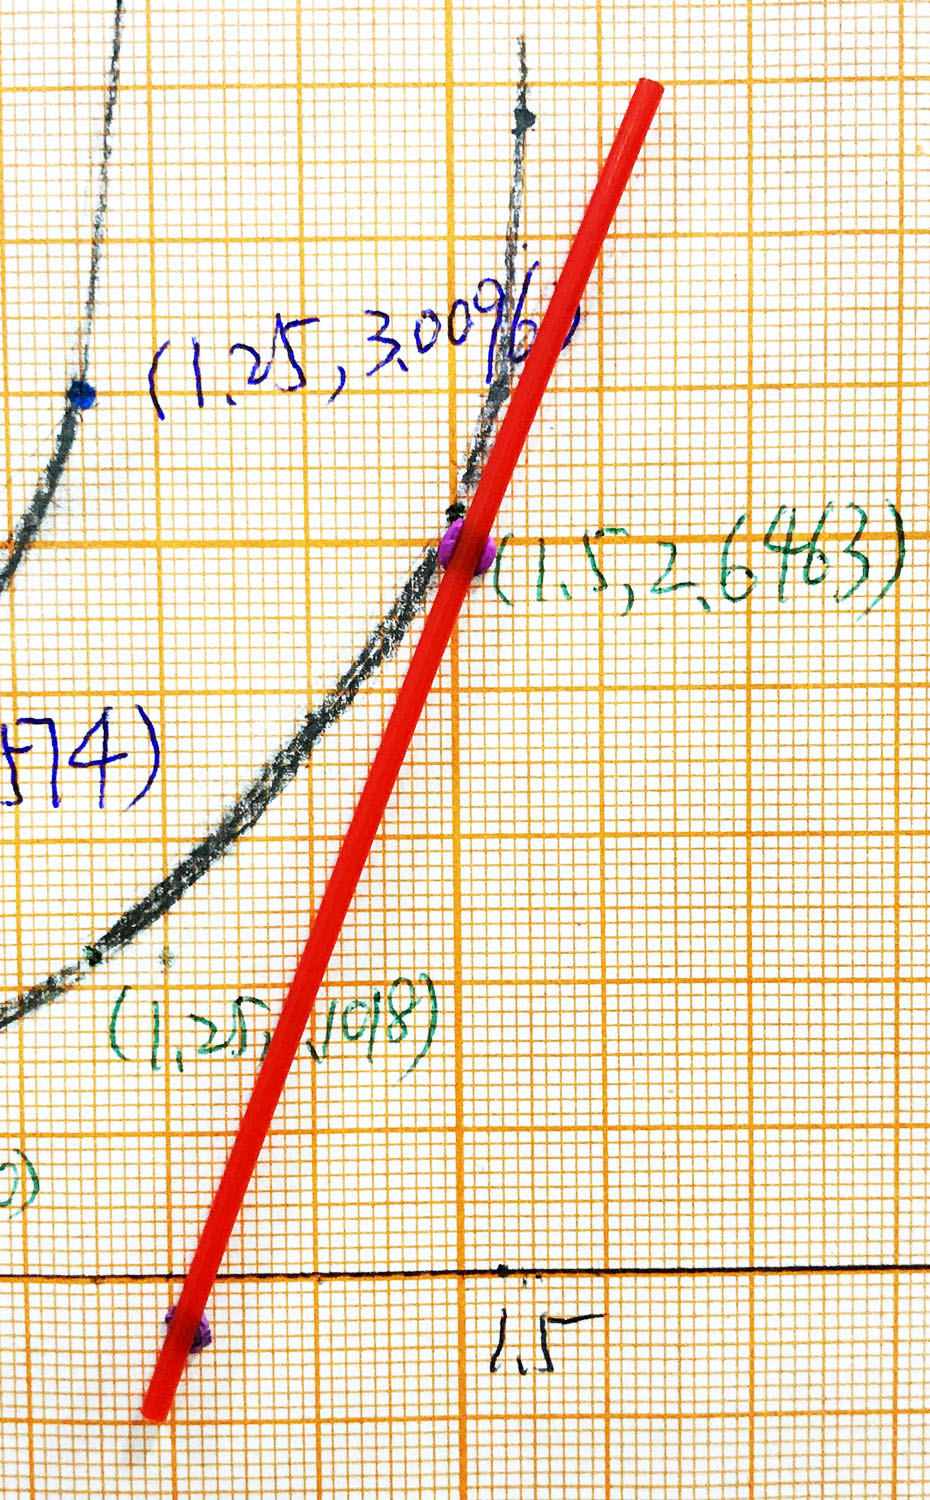 (1.25, 3.0096)
(1.5, 2.6463)
574)
(1.25, .1018)
0)
1.5